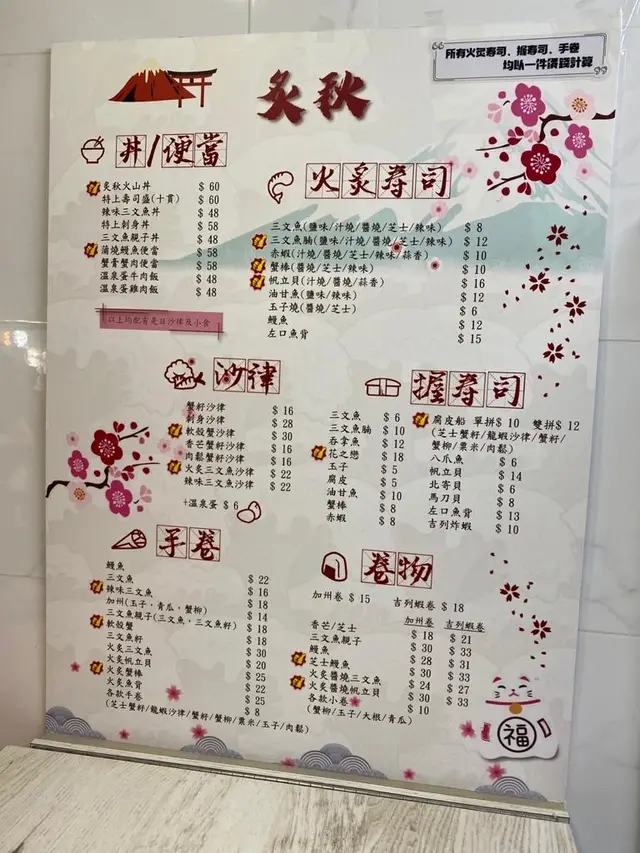 所有火炙寿司、握寿司、手卷
均以一件價錢計算
炙秋
丼/便當
炙秋火山丼 $ 60
特上壽司盛(十貫) $ 60
辣味三文魚丼 $ 48
特上刺身丼 $ 58
三文魚親子丼 $ 48
蒲燒鰻魚便當 $ 58
蟹膏蟹肉便當 $ 58
溫泉蛋牛肉飯 $ 48
溫泉蛋雞肉飯 $ 48
以上均配有是日沙律及小食
火炙壽司
三文魚(鹽味/汁燒/醬燒/芝士/辣味) $ 8
三文魚腩(鹽味/汁燒/醬燒/芝士/辣味) $ 12
赤蝦(汁燒/醬燒/辣味/蒜香) $ 10
蟹棒(醬燒/芝士/辣味) $ 10
帆立貝(汁燒/醬燒/蒜香) $ 16
油甘魚(鹽味/辣味) $ 12
玉子燒(醬燒/芝士) $ 6
鰻魚 $ 12
左口魚背 $ 15
沙律
蟹籽沙律 $ 16
刺身沙律 $ 28
軟殼蟹沙律 $ 30
香芒蟹籽沙律 $ 16
肉鬆蟹籽沙律 $ 16
火炙三文魚沙律 $ 22
辣味三文魚沙律 $ 22
+溫泉蛋 $ 6
握壽司
三文魚 $ 6
三文魚腩 $ 10
吞拿魚 $ 12
花之戀 $ 18
玉子 $ 5
腐皮 $ 5
油甘魚 $ 10
蟹棒 $ 8
赤蝦 $ 8
腐皮船 單拼$ 10 雙拼$ 12
(芝士蟹籽/龍蝦沙律/蟹籽/
蟹柳/粟米/肉鬆)
八爪魚 $ 6
帆立貝 $ 14
北寄貝 $ 6
馬刀貝 $ 8
左口魚背 $ 13
吉列炸蝦 $ 10
手卷
鰻魚 $ 22
三文魚 $ 16
辣味三文魚 $ 18
加州(玉子,青瓜,蟹柳) $ 14
三文魚親子(三文魚,三文魚籽) $ 18
軟殼蟹 $ 18
三文魚籽 $ 30
火炙三文魚 $ 20
火炙帆立貝 $ 25
火炙蟹棒 $ 22
火炙魚背 $ 25
各款手卷 $ 8
(芝士蟹籽/龍蝦沙律/蟹籽/蟹柳/粟米/玉子/肉鬆)
卷物
加州卷 $ 15 吉列蝦卷 $ 18
加州卷 吉列蝦卷
香芒/芝士 $ 18 $ 21
三文魚親子 $ 30 $ 33
鰻魚 $ 30 $ 33
芝士鰻魚 $ 28 $ 31
火炙醬燒三文魚 $ 24 $ 27
火炙醬燒帆立貝 $ 30 $ 33
各款小卷 $ 10
(蟹柳/玉子/大根/青瓜)
福